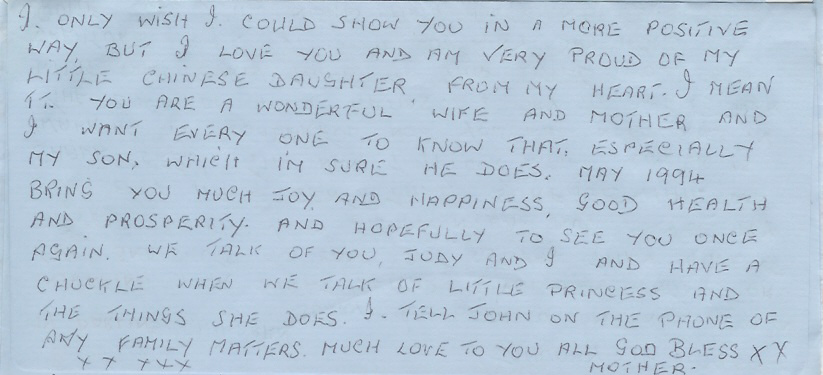 I. ONLY WISH I. COULD SHOW YOU IN A MORE POSITIVE
WAY, BUT I LOVE YOU AND AM VERY PROUD OF MY
LITTLE CHINESE DAUGHTER FROM MY HEART. I MEAN
IT. YOU ARE A WONDERFUL WIFE AND MOTHER AND
I WANT EVERY ONE TO KNOW THAT, ESPECIALLY
MY SON, WHICH I'M SURE HE DOES. MAY 1994
BRING YOU MUCH JOY AND HAPPINESS, GOOD HEALTH
AND PROSPERITY. AND HOPEFULLY TO SEE YOU ONCE
AGAIN. WE TALK OF YOU, JUDY AND I AND HAVE A
CHUCKLE WHEN WE TALK OF LITTLE PRINCESS AND
THE THINGS SHE DOES. I. TELL JOHN ON THE PHONE OF
ANY FAMILY MATTERS. MUCH LOVE TO YOU ALL GOD BLESS X X
X X X X X MOTHER.